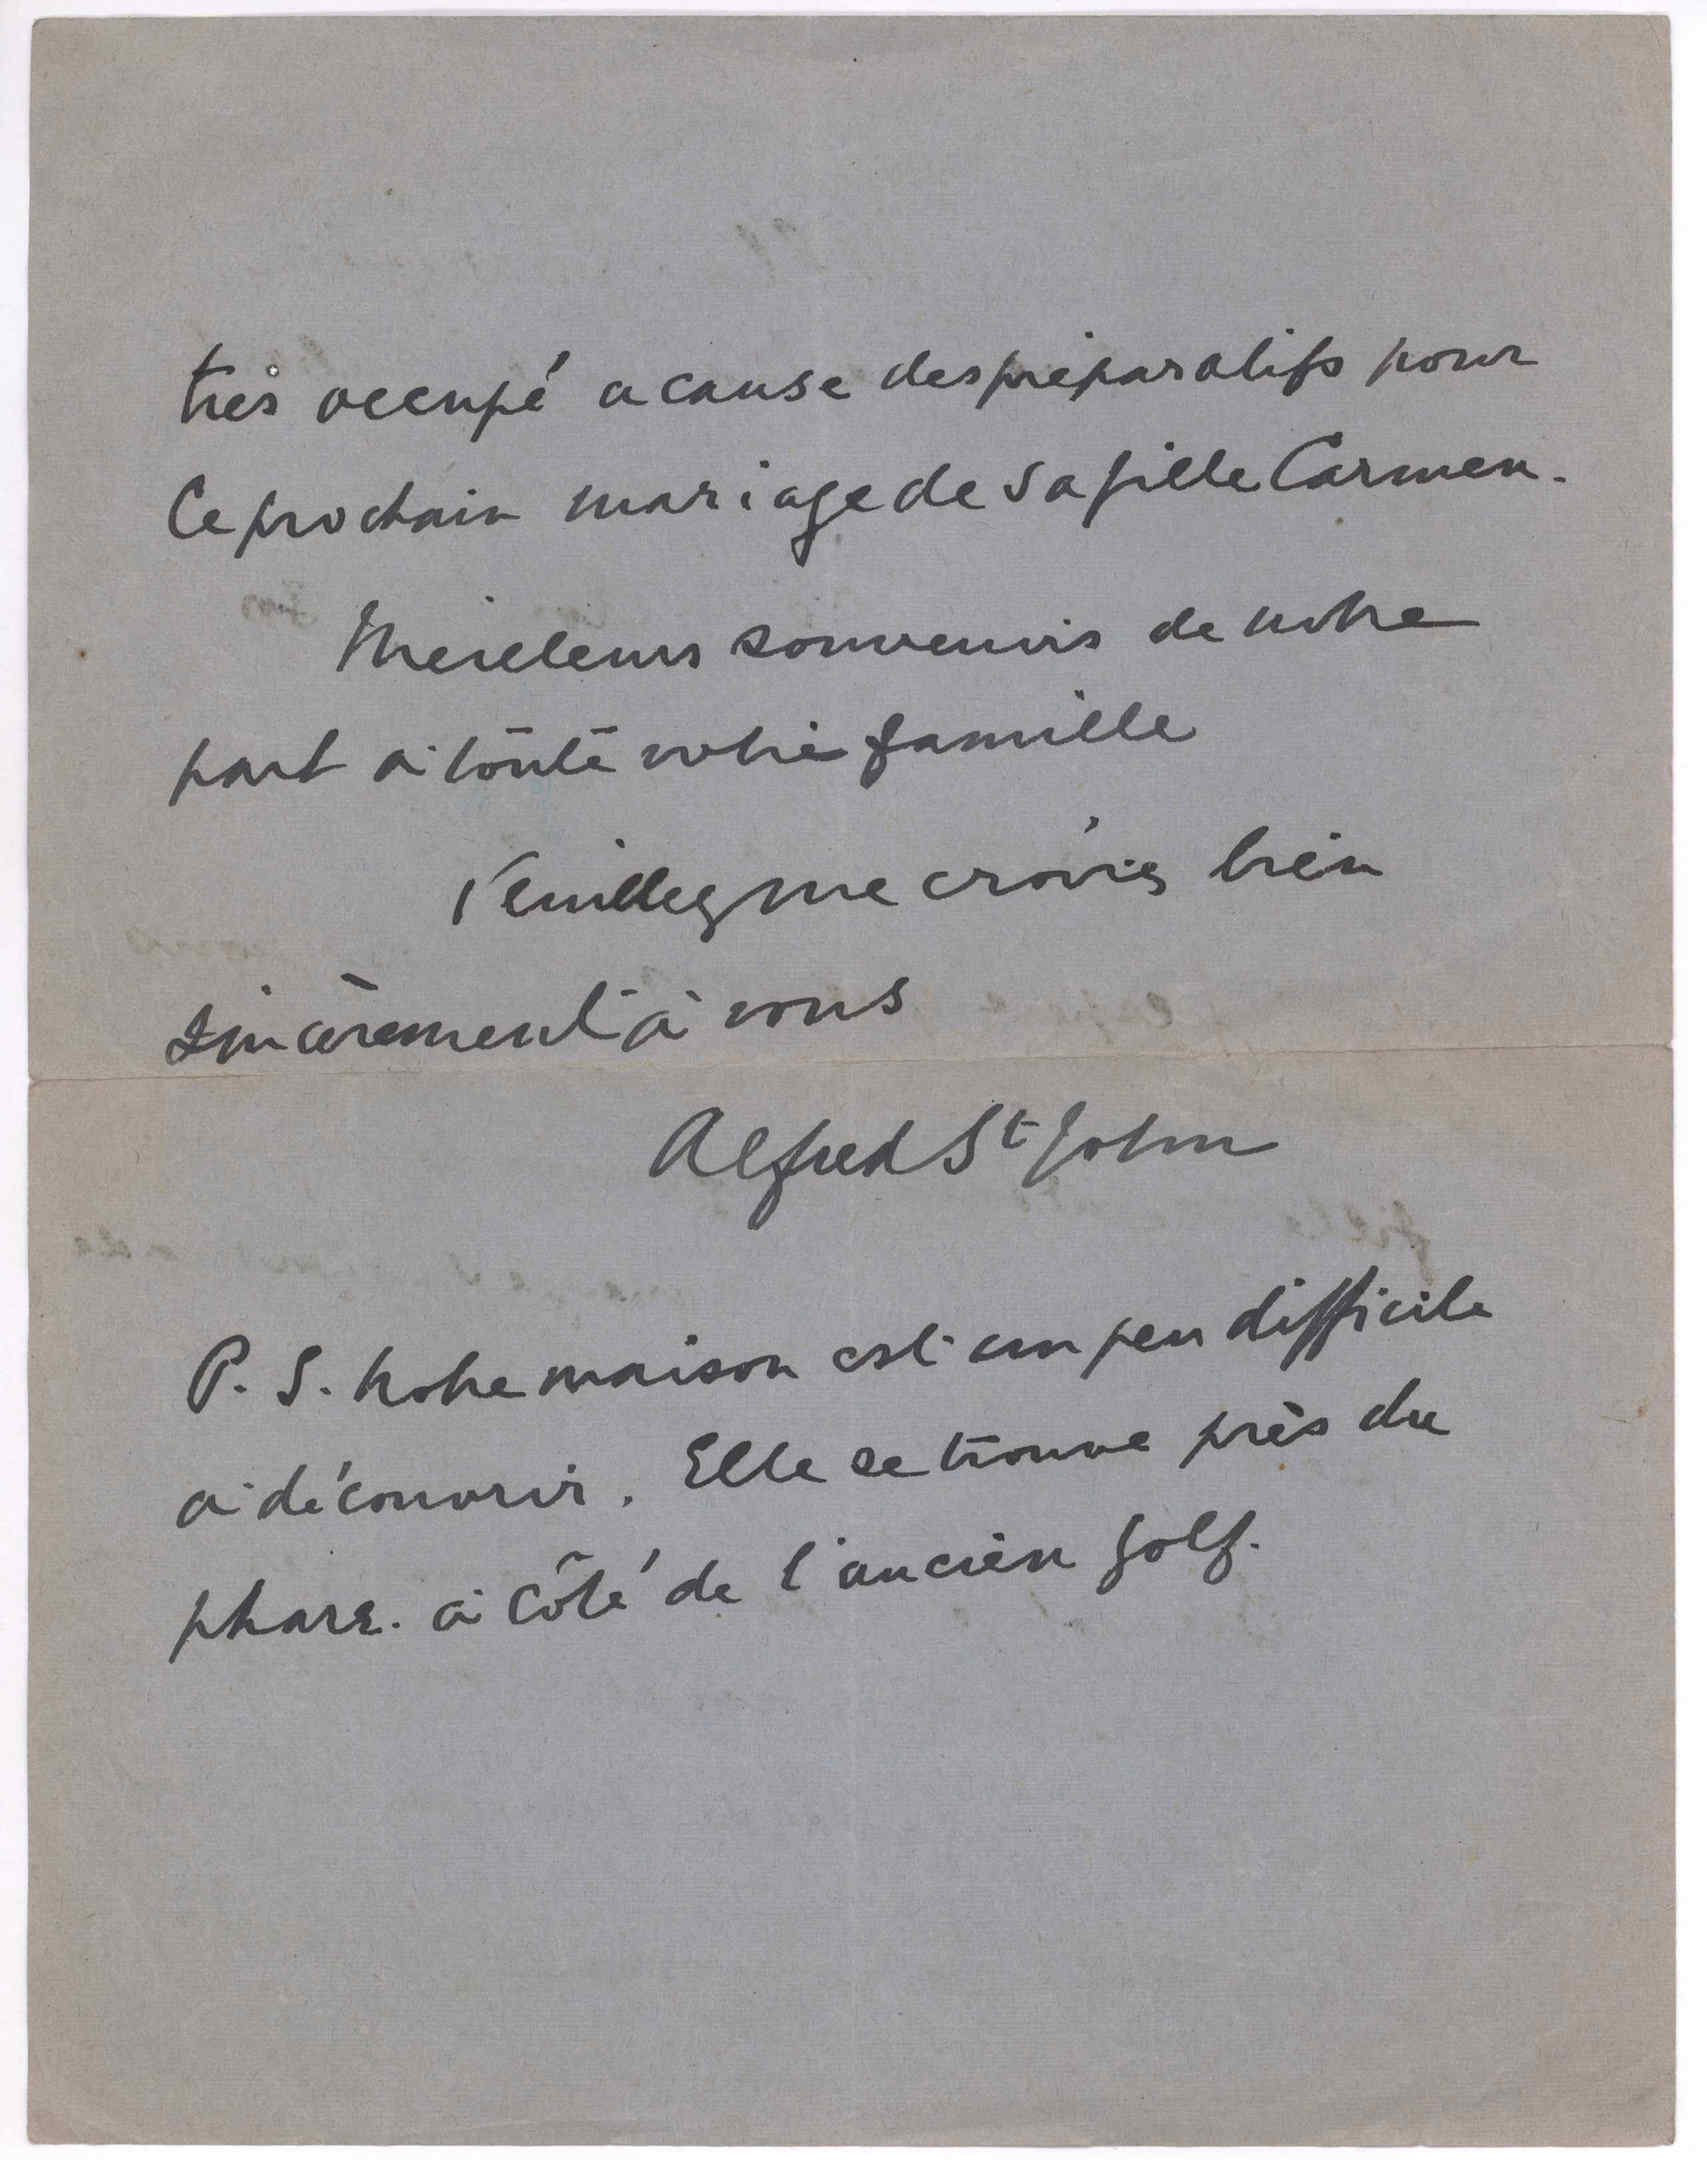 très occupé a cause des préparatifs pour
le prochain mariage de sa fille Carmen.
Meilleurs souvenirs de notre
part à toute votre famille
Veuillez me croire bien
sincèrement à vous
Alfred St John
P. S. Notre maison est un peu difficile
à découvrir. Elle se trouve près du
phare. à côté de l'ancien golf.